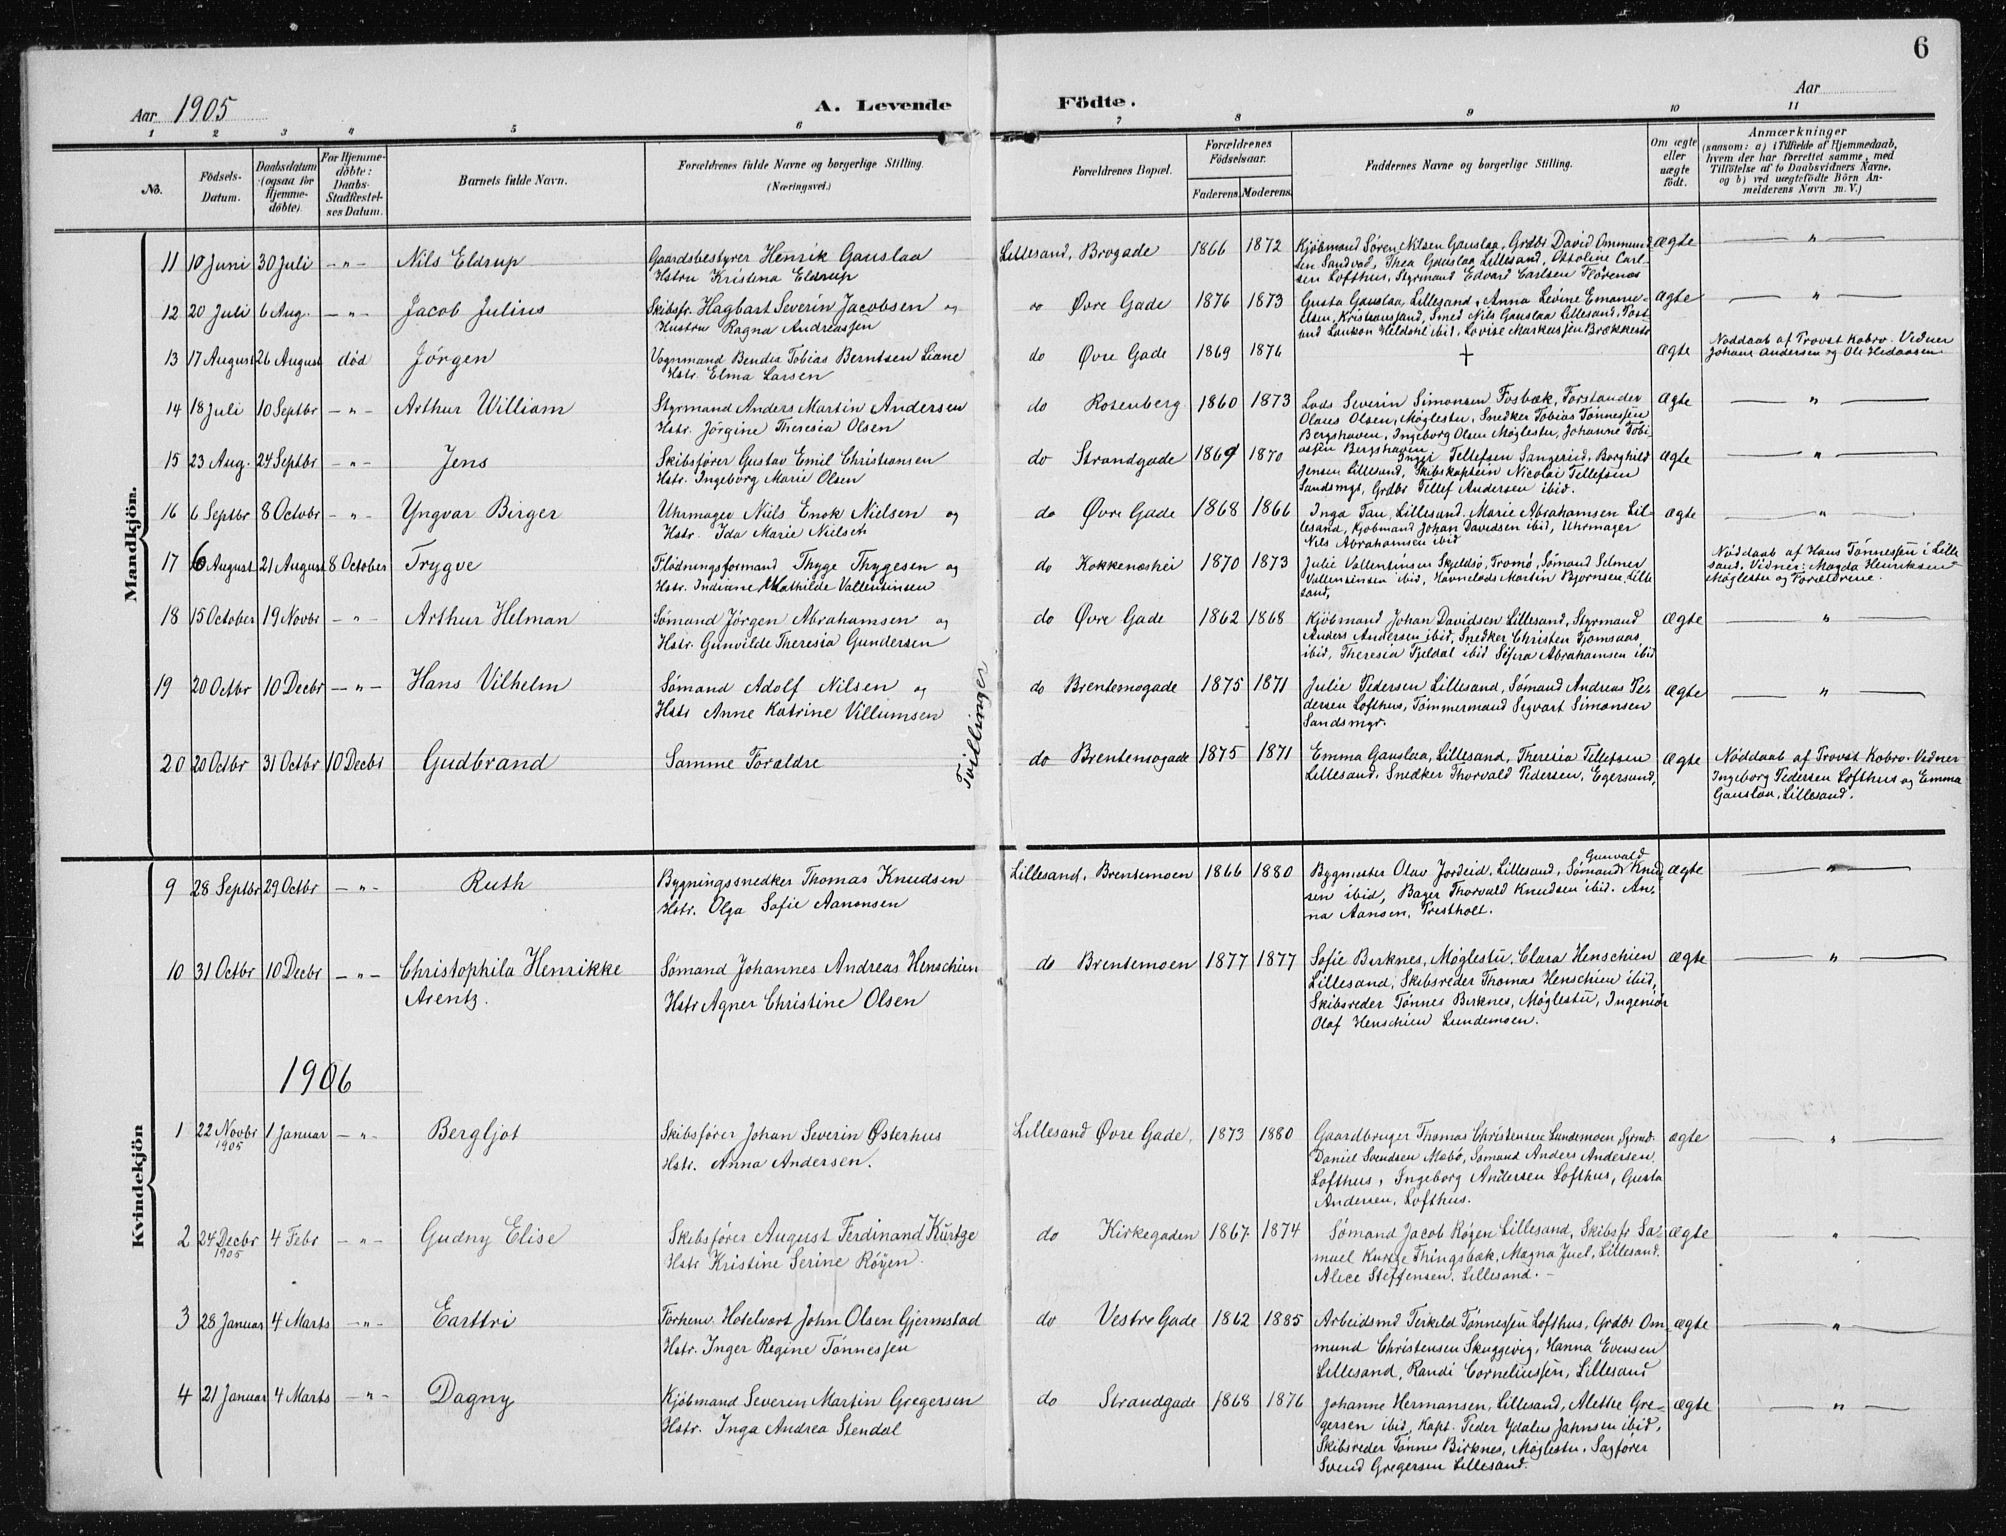 6
Aar 1905 A. Levende Födte. Aar
1 2 3 4 5 6 7 8 9 10 11
No.
Födsels-Datum.
Daabsdatum (ogsaa for Hjemme-döbte).
For Hjemme-döbte: Daabs-Stadfæstel-ses Datum.
Barnets fulde Navn.
Forældrenes fulde Navne og borgerlige Stilling. (Næringsvei.)
Forældrenes Bopæl.
Forældrenes Födselsaar.
Faderens. Moderens.
Faddernes Navne og borgerlige Stilling.
Om ægte eller uægte födt.
Anmærkninger (saasom: a) i Tilfælde af Hjemmedaab, hvem der har forrettet samme, med Tilföielse af to Daabsvidners Navne, og b) ved uægtefödte Börn An-melderens Navn m. V.)
Mandkjön.
11 10 Juni 30 Juli -"- Nils Eldrup Gaardsbestyrer Henrik Gauslaa Lillesand, Brogade 1866 1872 Kjöbmand Søren Nilsen Gauslaa, Grdbr David Ommund- ægte "
Hstru Kristena Eldrup sen Sandvad, Thea Gauslaa Lillesand, Ottoline Carl-
sen Lofthus, Styrmand Edvard Carlsen
12 20 Juli 6 Aug. -"- Jacob Julius Skibsfr. Hagbart Severin Jacobsen og Øvre Gade 1876 1873 Gusta Gauslaa, Lillesand, Anna Levine Emanu- ægte "
Hustru Ragna Andreassen elsen, Kristianssand, Smed Nils Gauslaa Lillesand, Post-
ibid, Lovise Markussen Brækkestø
13 17 August 26 August død Jörgen Vognmand Bendix Tobias Berntsen Liane do Øvre Gade 1869 1876 + ægte Nøddaab af Provst Kobro. Vidner
Hstr. Elma Larsen Johans Andersen og Ole
14 18 Juli 10 Septbr -"- Arthur William Styrmand Anders Martin Andersen do Rosenberg 1860 1873 Lods Severin Simonsen Fosbæk, Forstander ægte "
Hstr. Jörgine Theresia Olsen Olaus Olsen, Møglestu, Snedker Tobias Tønnessen
Bergshaven, Ingeborg Olsen Møglestu, Johanne Tobi-
assen Bergshaven
15 23 Aug. 24 Septbr -"- Jens Skibsfører Gustav Emil Christiansen do Strandgade 1869 1870 Inger Tellefsen Sangereid, Borghild ægte "
Hstr. Ingeborg Marie Olsen Jensen Lillesand, Skibskaptein Nicolai Tellefsen
Sandsmgr, Grdbr Tellef Andersen ibid.
16 6 Septbr 8 Octobr -"- Yngvar Birger Uhrmager Nils Enok Nielsen og do Øvre Gade 1868 1866 Inga Tau, Lillesand. Marie Abrahamsen Lil- ægte "
Hstr. Ida Marie Nielsen lesand, Kjøbmand Johan Davidsen ibid, Uhrmager
Nils Abrahamsen ibid
17 6 August 21 August 8 October Trygve Flødningsformand Thyge Thygesen og do Kokkenæshei 1870 1873 Julie Vallentinsen Skjeldsø, Tromø, Sømand Selmer Nøddaab af Hans Tønnessen i Lille
Hstr. Indiane Mathilde Vallentinsen Vallentinsen ibid, Havnelods Martin Bjørnsen, Lille sand, Vidner: Magda Henriksen
sand, Møglestu og Foreldrene.
18 15 October 19 Novbr -"- Arthur Helman Sømand Jörgen Abrahamsen og do Øvre Gade 1862 1868 Kjöbmand Johan Davidsen Lillesand, Styrmand ægte "
Hstr. Gunvilde Theresia Gundersen Anders Andersen ibid, Snedker Christen Tjomsaas
ibid, Theresia Tjeldal ibid Sofia Abrahamsen ibid
19 20 Octbr 10 Decbr -"- Hans Vilhelm Sømand Adolf Nilsen og do Brentemogade 1875 1871 Julie Pedersen Lillesand, Sømand Andreas Pe- ægte "
Hstr Anne Katrine Villumsen dersen Lofthus, Tømmermand Sigvart Simonsen
Sandsmgr.
Tvillinger
20 20 Octbr 31 Octbr 10 Decbr Gudbrand Samme Foraldre do Brentemogade 1875 1871 Emma Gauslaa, Lillesand, Theresia Tellefsen ægte Nøddaab af Provst Kobro. Vidner
Lillesand, Snedker Thorvald Pedersen, Egersund, Ingeborg Pedersen Lofthus og Emma
Gauslaa, Lillesand.
Kvindekjön
9 28 Septbr 29 Octbr -"- Ruth Bygningssnedker Thomas Knudsen Lillesand, Brentemoen 1866 1880 Bygmester Olav Jordeid, Lillesand, Sømand Gunvald Knud- ægte "
Hstr. Olga Sofie Aanonsen sen ibid, Bager Thorvald Knudsen ibid. An-
na Aansen, Prestholt.
10 31 Octbr 10 Decbr -"- Christophila Henrikke Sømand Johannes Andreas Henschien do Brentemoen 1877 1877 Sofie Birknes, Møglestu, Clara Henschien ægte "
Arentz. Hstr Agner Christine Olsen Lillesand, Skibsreder Thomas Henschien ibid,
Skibsreder Tønnes Birknes, Møglestu, Ingeniør
Olaf Henschien Lundemoen.
1906
1 22 Novbr 1905 1 Januar -"- Bergljot Skibsfører Johan Severin Østerhus Lillesand Øvre Gade, 1873 1880 Gaardbruger Thomas Christensen Lundemoen, Styrmd. ægte "
Hstr. Anna Andersen. Daniel Svendsen Mæbø, Sømand Anders Andersen
Lofthus, Ingeborg Andersen Lofthus, Gusta
Andersen, Lofthus.
2 24 Decbr 1905 4 Febr -"- Gudny Elise Skibsfører August Ferdinand Kürtge do Kirkegaden 1867. 1874 Sømand Jacob Røyen Lillesand, Skibsfr Sa- ægte "
Hstr Kristine Serine Røyen. muel Kurtge Thingsbæk, Magna Juel, Lillesand.
Alice Steffensen. Lillesand. -
3 28 Januar 4 Marts -"- Earttri Forhenv. Hotelvært John Olsen Gjermstad do Vestre Gade 1862 1885 Arbeidsmd Terkeld Tønnessen Lofthus, Grdbr Om- ægte "
Hstr. Inger Regine Tønnessen mund Christensen Skuggevig, Hanna Evensen
Lillesand, Randi Corneliussen, Lillesand
4 21 Januar 4 Marts -"- Dagny Kjöbmand Severin Martin Gregersen do Strandgade 1868 1876 Johanne Hermansen, Lillesand, Alette Gre- ægte "
Hstr. Inga Andrea Stendal gersen ibid, Kapt. Peder Ydalus Jahnsen ibid,
Skibsreder Tønnes Birknes, Møglestu. Sagfører
Svend Gregersen Lillesand.